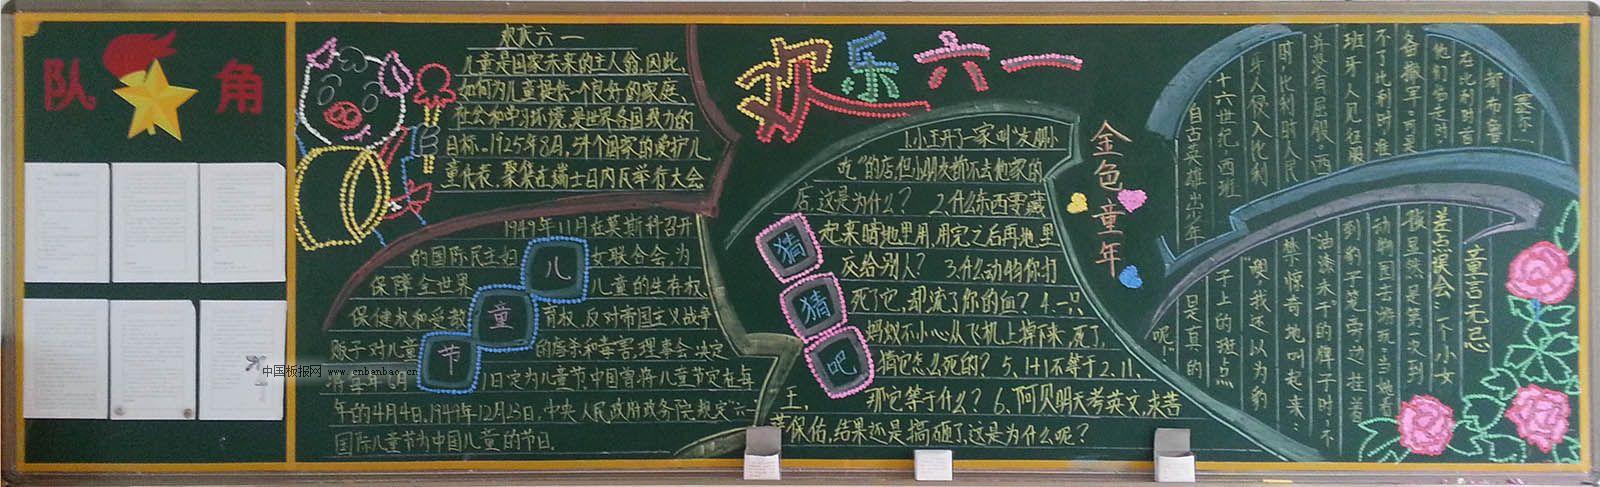 队角
欢庆六一
儿童是国家未来的主人翁,因此,
如何为儿童提供一个良好的家庭、
社会和学习环境,是世界各国致力的
目标。1925年8月,54个国家的爱护儿
童代表,聚集在瑞士日内瓦举行大会
1949年11月在莫斯科召开
的国际民主妇女联合会,为
保障全世界儿童的生存权
保健权和受教育权,反对帝国主义战争
贩子对儿童的虐杀和毒害,理事会决定
1日定为儿童节中国曾将儿童节定在每
年的4月4日,1949年12月23日,中央人民政府政务院规定"六一
国际儿童节为中国儿童的节日.
儿
童
节
中国板报网 www.cnbanbao.cn
欢乐六一
1.小王开了一家叫"友朋小
吃"的店但小朋友都不去他家的
店,这是为什么? 2、什么东西要藏
起来暗地里用,用完之后再地里
交给别人? 3.什么动物你打
死了它,却流了你的血? 4.一只
蚂蚁不小心从飞机上掉下来,死了,
猜它怎么死的? 5、1+1不等于2、11、
王、那它等于什么? 6、阿贝明天考英文,求菩
萨保佑,结果还是搞砸了,这是为什么呢?
猜
猜
吧
金色童年
塞尔
都布鲁
在比利时首
他们临走时,
备撤军。可是
不了比利时,准
班牙人见征服
并没有屈服。西
时,比利时人民
牙人侵入比利
十六世纪,西班
自古英雄出少年
童言无忌
差点误会:一个小女
孩显然是第一次到
动物园去游玩,当她看
到豹子笼旁边挂着
"油漆未干"的牌子时,不
禁惊奇地叫起来:
"噢,我还以为豹
子上的斑点
是真的
呢!"